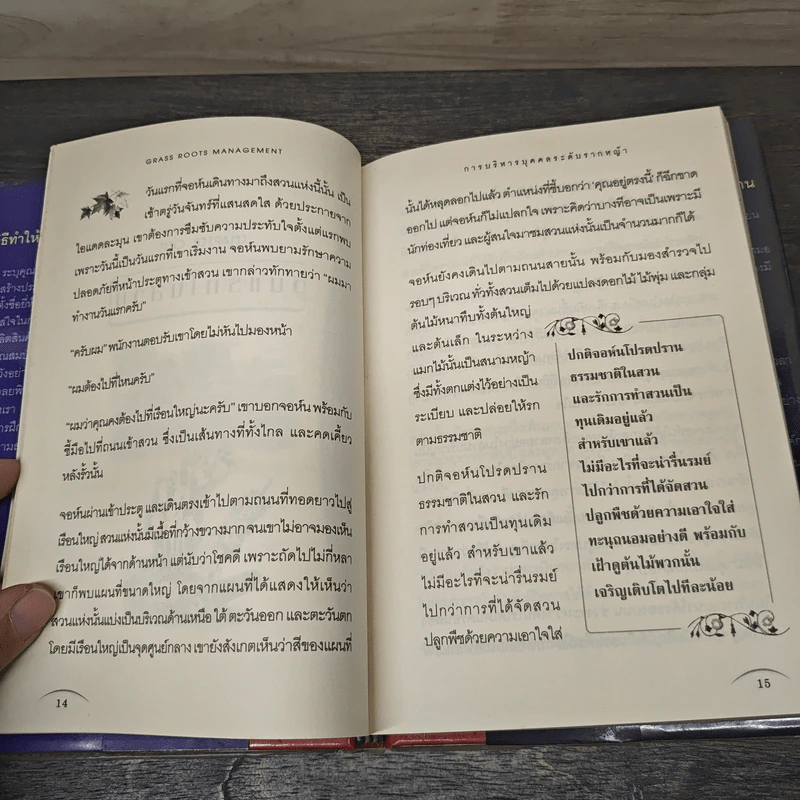 GRASS ROOTS MANAGEMENT
วันแรกที่จอห์นเดินทางมาถึงสวนแห่งนี้นั้น เป็น
เช้าตรู่วันจันทร์ที่แสนสดใส ด้วยประกายจาก
ไอแดดละมุน เขาต้องการซึมซับความประทับใจตั้งแต่แรกพบ
เพราะวันนี้เป็นวันแรกที่เขาเริ่มงาน จอห์นพบยามรักษาความ
ปลอดภัยที่หน้าประตูทางเข้าสวน เขากล่าวทักทายว่า “ผมมา
ทำงานวันแรกครับ”
“ครับผม” พนักงานตอบรับเขาโดยไม่หันไปมองหน้า
“ผมต้องไปที่ไหนครับ”
“ผมว่าคุณคงต้องไปที่เรือนใหญ่นะครับ” เขาบอกจอห์น พร้อมกับ
ชี้มือไปที่ถนนเข้าสวน ซึ่งเป็นเส้นทางที่ทั้งไกล และคดเคี้ยว
หลังรั้วนั้น
จอห์นผ่านเข้าประตู และเดินตรงเข้าไปตามถนนที่ทอดยาวไปสู่
เรือนใหญ่ สวนแห่งนั้นมีเนื้อที่กว้างขวางมาก จนเขาไม่อาจมองเห็น
เรือนใหญ่ได้จากด้านหน้า แต่นับว่าโชคดี เพราะถัดไปไม่กี่หลา
เขาก็พบแผนที่ขนาดใหญ่ โดยจากแผนที่ได้แสดงให้เห็นว่า
สวนแห่งนั้นแบ่งเป็นบริเวณด้านเหนือ ใต้ ตะวันออก และตะวันตก
โดยมีเรือนใหญ่เป็นจุดศูนย์กลาง เขายังสังเกตเห็นว่าสีของแผนที่
14
การบริหารบุคคลระดับรากหญ้า
นั้นได้หลุดลอกไปแล้ว ตำแหน่งที่ชี้บอกว่า ‘คุณอยู่ตรงนี้’ ก็ฉีกขาด
ออกไป แต่จอห์นก็ไม่แปลกใจ เพราะคิดว่าบางทีอาจเป็นเพราะมี
นักท่องเที่ยว และผู้สนใจมาชมสวนแห่งนั้นเป็นจำนวนมากก็ได้
จอห์นยังคงเดินไปตามถนนสายนั้น พร้อมกับมองสำรวจไป
รอบๆ บริเวณ ทั่วทั้งสวนเต็มไปด้วยแปลงดอกไม้ ไม้พุ่ม และกลุ่ม
ต้นไม้หนาทึบทั้งต้นใหญ่
และต้นเล็ก ในระหว่าง
แมกไม้นั้นเป็นสนามหญ้า
ซึ่งมีทั้งตกแต่งไว้อย่างเป็น
ระเบียบ และปล่อยให้รก
ตามธรรมชาติ
ปกติจอห์นโปรดปราน
ธรรมชาติในสวน และรัก
การทำสวนเป็นทุนเดิม
อยู่แล้ว สำหรับเขาแล้ว
ไม่มีอะไรที่จะน่ารื่นรมย์
ไปกว่าการที่ได้จัดสวน
ปลูกพืชด้วยความเอาใจใส่
ปกติจอห์นโปรดปราน
ธรรมชาติในสวน
และรักการทำสวนเป็น
ทุนเดิมอยู่แล้ว
สำหรับเขาแล้ว
ไม่มีอะไรที่จะน่ารื่นรมย์
ไปกว่าการที่ได้จัดสวน
ปลูกพืชด้วยความเอาใจใส่
ทะนุถนอมอย่างดี พร้อมกับ
เฝ้าดูต้นไม้พวกนั้น
เจริญเติบโตไปทีละน้อย
15